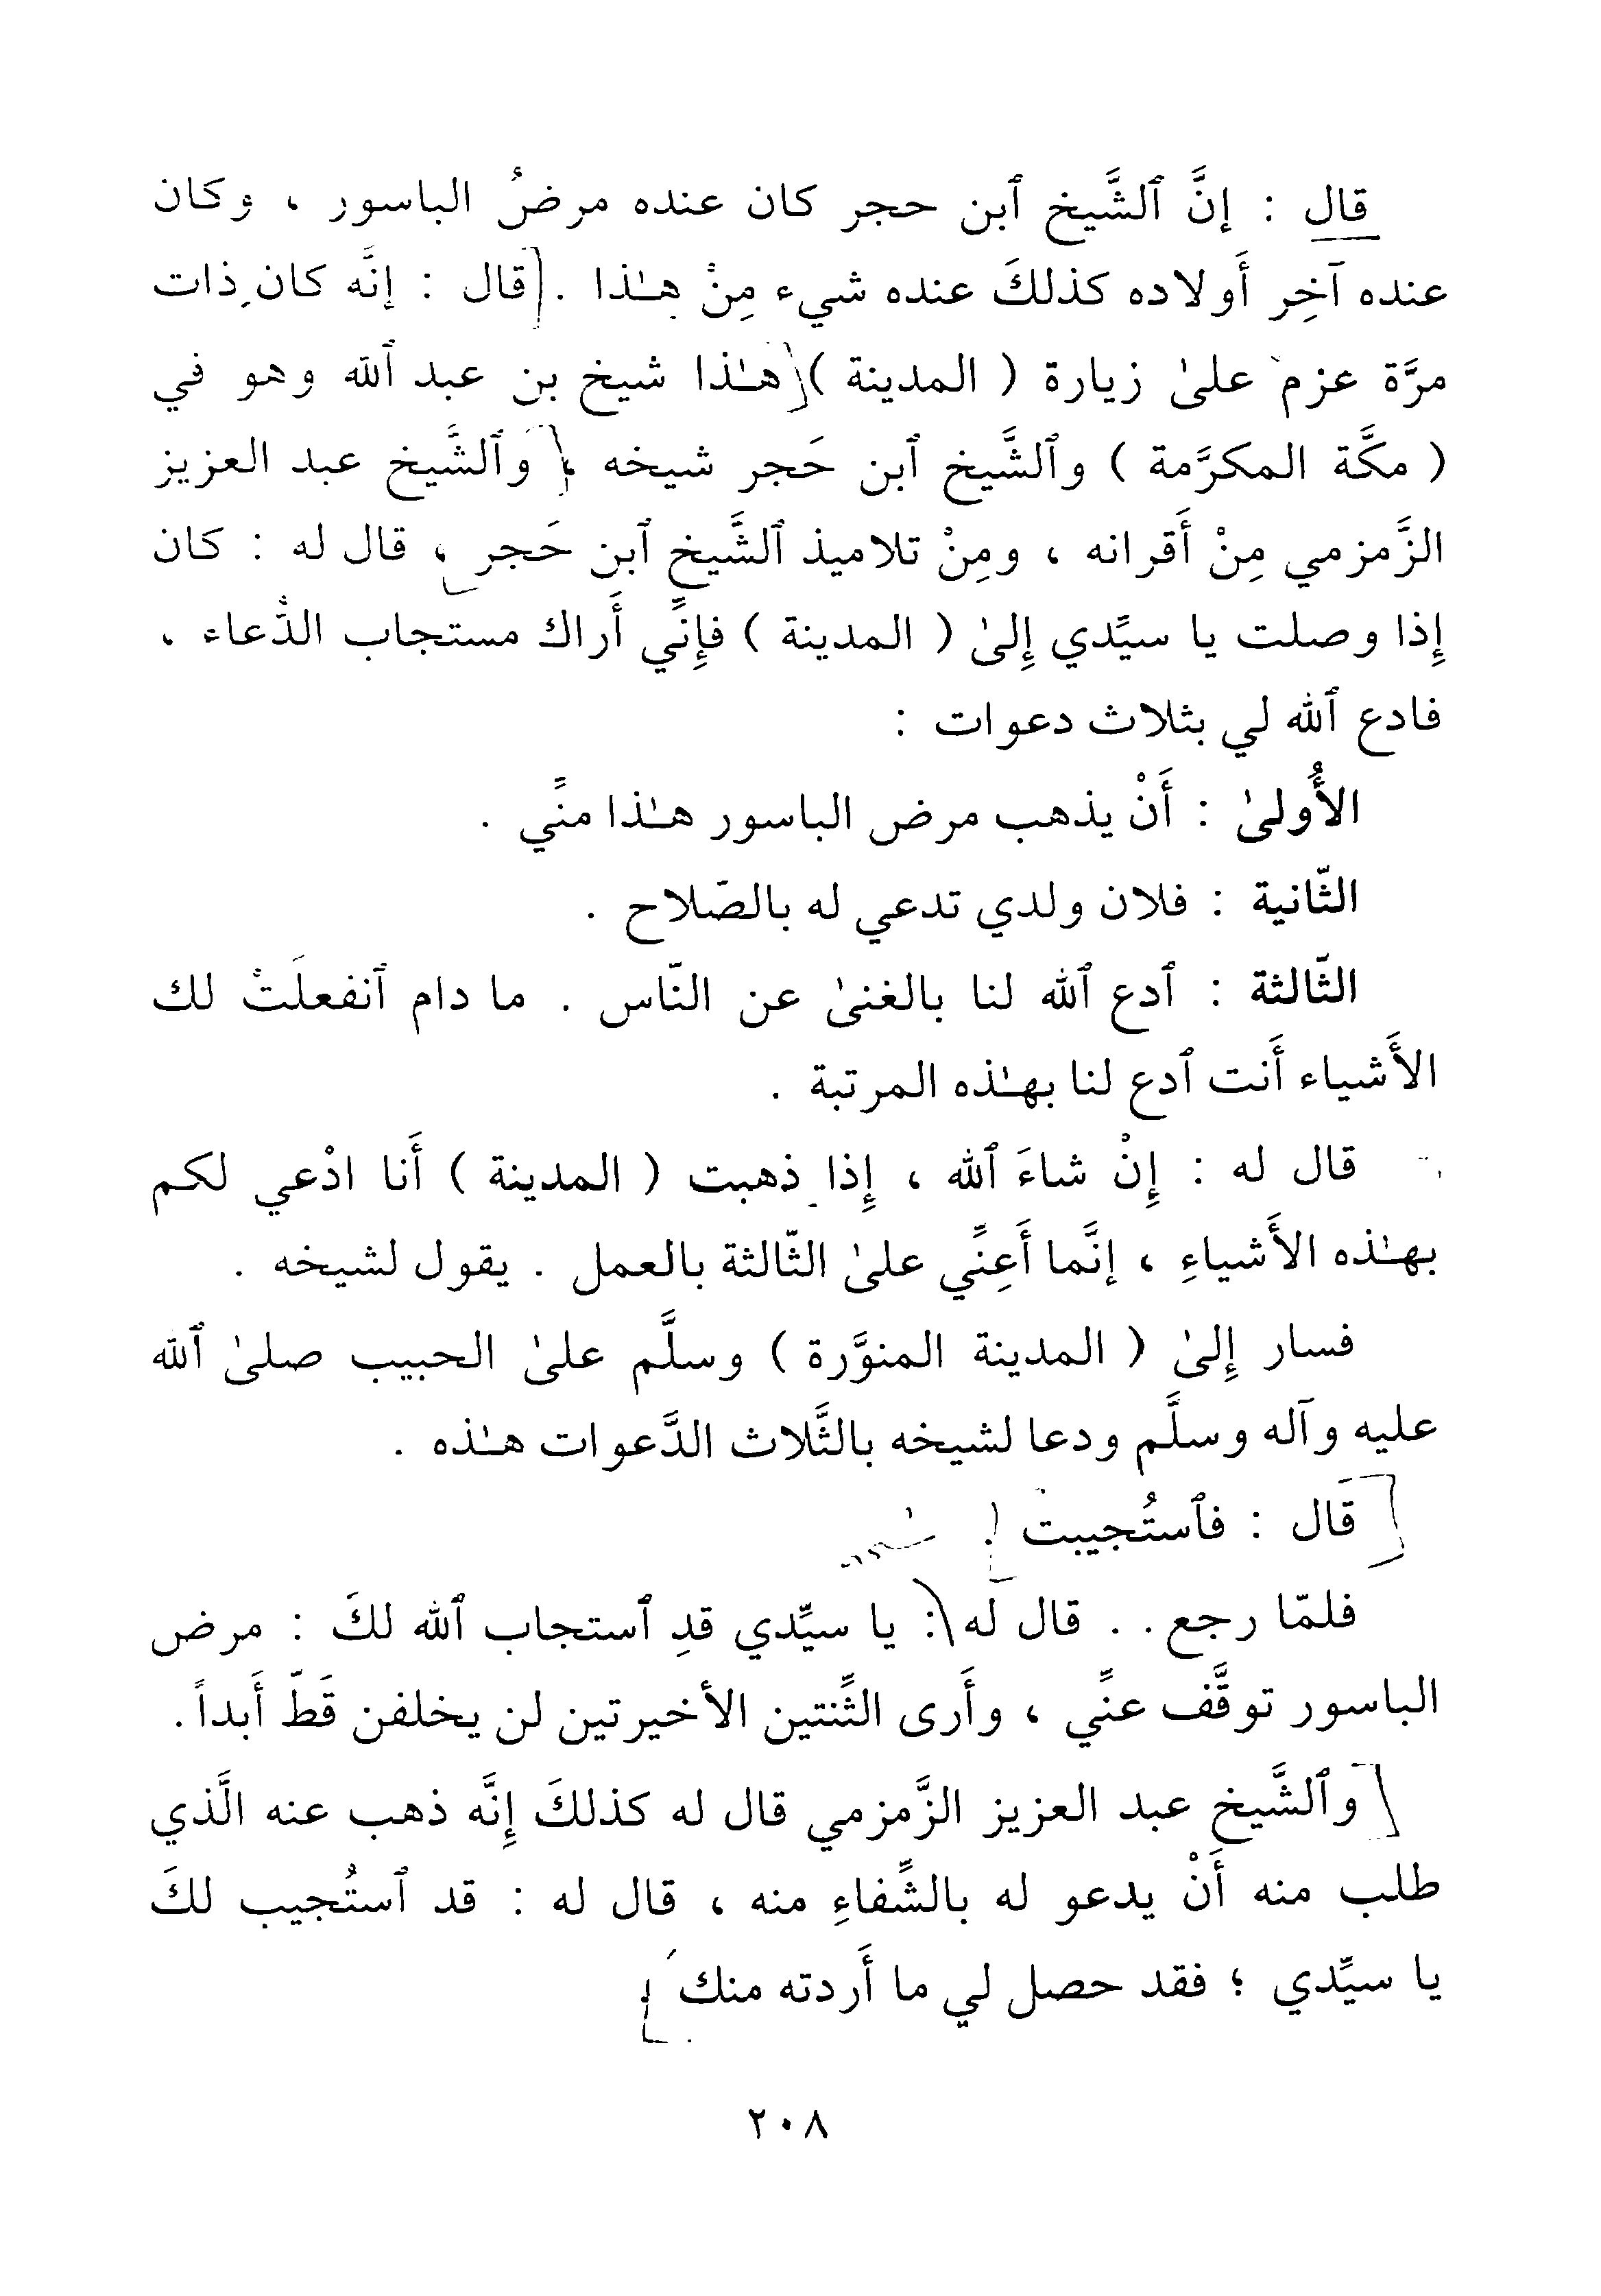 قال : إنَّ ٱلشَّيخ ٱبن حجر كان عنده مرضُ الباسور ، وكان
عنده آخِر أَولاده كذلكَ عنده شيء مِنْ هـٰذا . قال : إنَّه كان ذات
مرَّة عزم علىٰ زيارة ( المدينة ) هـٰذا شيخ بن عبد ٱلله وهو في
( مكَّة المكرَّمة ) وٱلشَّيخ ٱبن حَجر شيخه ، وٱلشَّيخ عبد العزيز
الزَّمزمي مِنْ أَقرانه ، ومِنْ تلاميذ ٱلشَّيخ ٱبن حَجر ، قال له : كان
إِذا وصلت يا سيِّدي إِلىٰ ( المدينة ) فإِنِّي أَراك مستجاب الدُّعاء ،
فادع ٱلله لي بثلاث دعوات :
الأُولىٰ : أَنْ يذهب مرض الباسور هـٰذا منِّي .
الثّانية : فلان ولدي تدعي له بالصّلاح .
الثّالثة : ٱدع ٱلله لنا بالغنىٰ عن النّاس . ما دام ٱنفعلَتْ لك
الأَشياء أَنت ٱدع لنا بهـٰذه المرتبة .
قال له : إِنْ شاءَ ٱلله ، إِذا ذهبت ( المدينة ) أَنا ادْعي لكم
بهـٰذه الأَشياءِ ، إنَّما أَعِنِّي علىٰ الثّالثة بالعمل . يقول لشيخه .
فسار إِلىٰ ( المدينة المنوَّرة ) وسلَّم علىٰ الحبيب صلىٰ ٱلله
عليه وآله وسلَّم ودعا لشيخه بالثَّلاث الدَّعوات هـٰذه .
قال : فٱستُجيبت .
فلمّا رجع . . قال له : يا سيِّدي قدِ ٱستجاب ٱلله لكَ : مرض
الباسور توقَّف عنِّي ، وأَرى الثِّنتين الأخيرتين لن يخلفن قَطّ أَبداً .
وٱلشَّيخ عبد العزيز الزَّمزمي قال له كذلكَ إِنَّه ذهب عنه الَّذي
طلب منه أَنْ يدعو له بالشِّفاءِ منه ، قال له : قد ٱستُجيب لكَ
يا سيِّدي ؛ فقد حصل لي ما أَردته منك .
٢٠٨